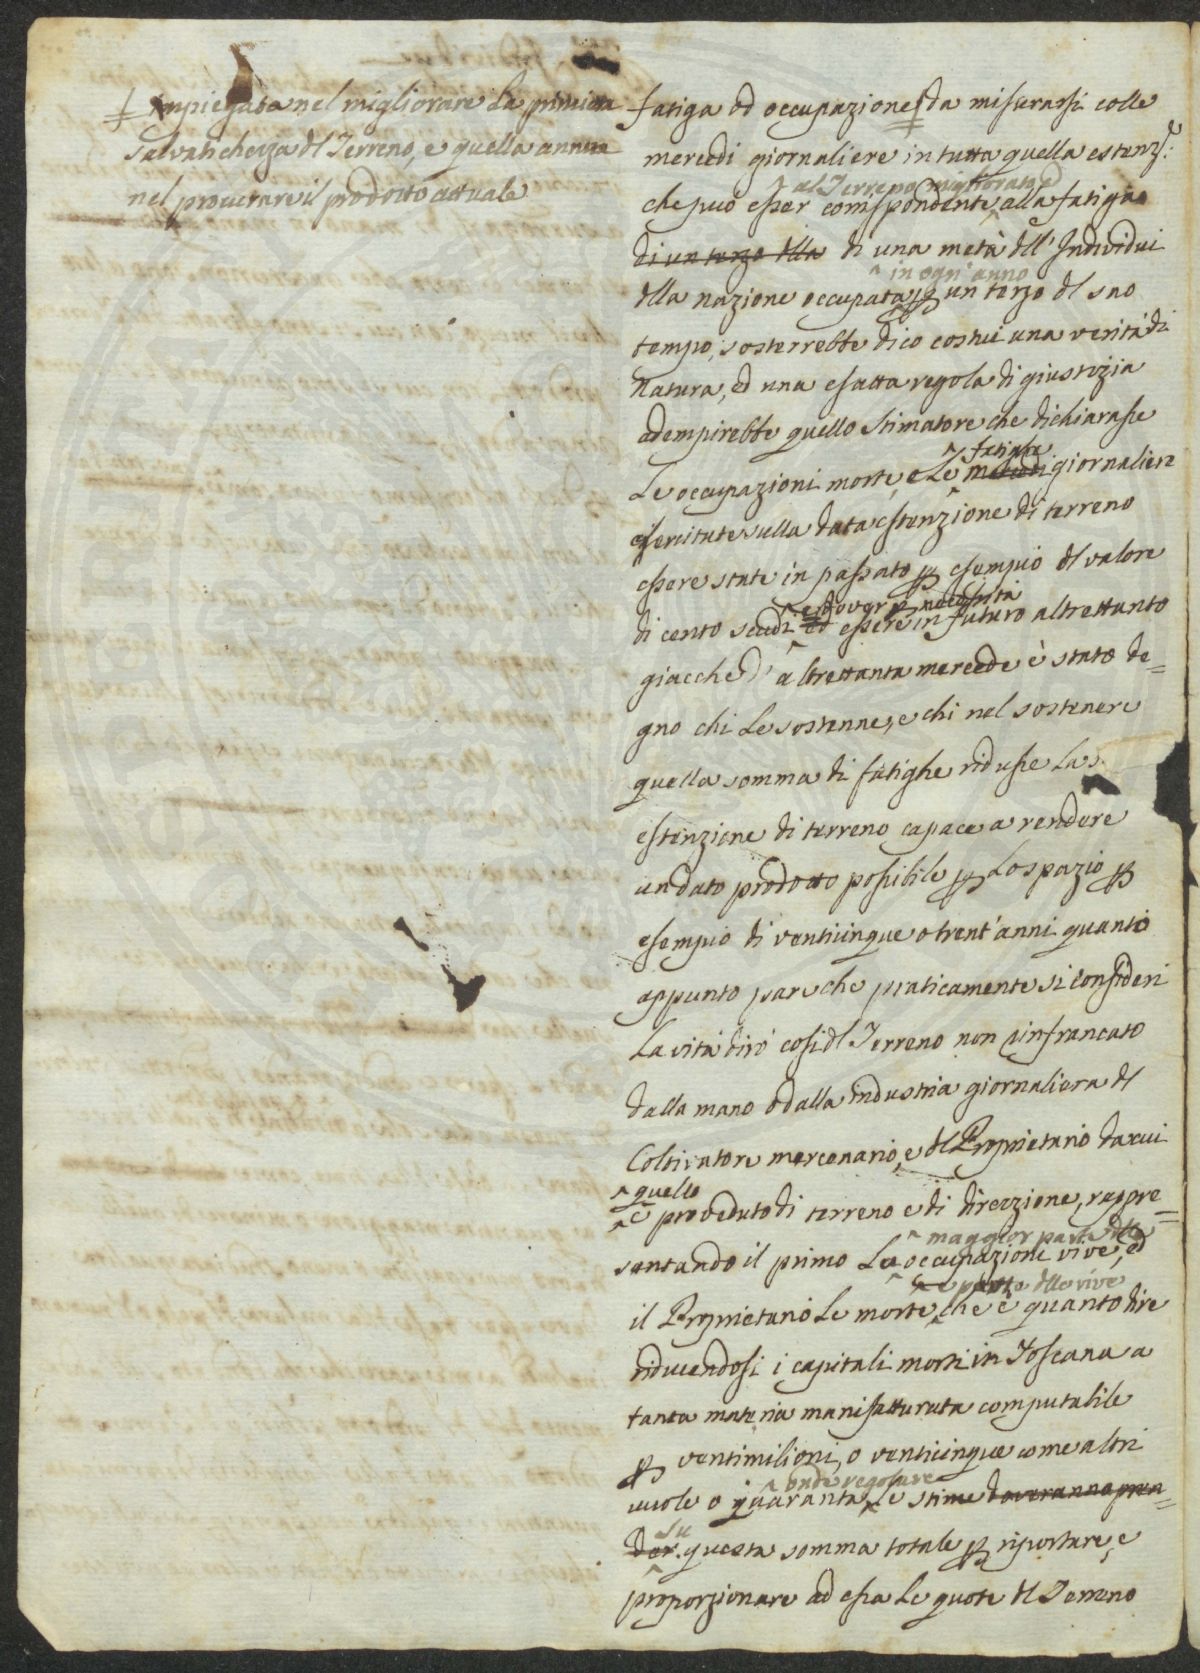 ‡ impiegata nel migliorare la primiera
salvatichezza dl Terreno, e quella annua
nel procurare il prodotto attuale
fatiga od occupazione ‡ da misurarsi colle
mercedi giornaliere in tutta quella estenz.e
^ al Terreno migliorato ed
che può esser corrispondente alla fatiga
di un terzo dlla di una metà dll' Individui
^ in ogn' anno
dlla nazione occupata p un terzo dl suo
tempo, sosterrebbe dico costui una verità di
Natura, ed una esatta regola di giustizia
adempirebbe quello stimatore che dichiarasse
^ fatighe
Le occupazioni morte, e Le mercedi giornaliere
esercitate sulla data estenzione di terreno
essere state in passato p esempio dl valore
^ e dover p necessità
di cento scudi ed essere in futuro altrettanto
giacche d' altrettanta mercede è stato de=
gno chi Le sostenne, e chi nel sostenere
quella somma di fatighe ridusse La s
estenzione di terreno capace a rendere
un dato prodotto possibile p Lo spazio p
esempio di venticinque o trent' anni quanti
appunto pare che praticamente si consideri
La vita dirò così dl Terreno non rinfrancato
dalla mano o dalla industria giornaliera dl
Coltivatore mercenario, e dl Proprietario da cui
^ quello
è proveduto di terreno e di direzzione, rappre=
^ maggior parte dlle
sentando il primo La occupazioni vive, ed
^ e parte dlle vive
il Proprietario Le morte, che è quanto dire
riducendosi i capitali morti in Toscana a
tanta materia manifatturata computabile
p ventimilioni, o venticinque come altri
^ onde regolare
vuole o quaranta, Le stime doveranno pren=
su
der questa somma totale p riportare, e
proporzionare ad essa Le quote dl Terreno